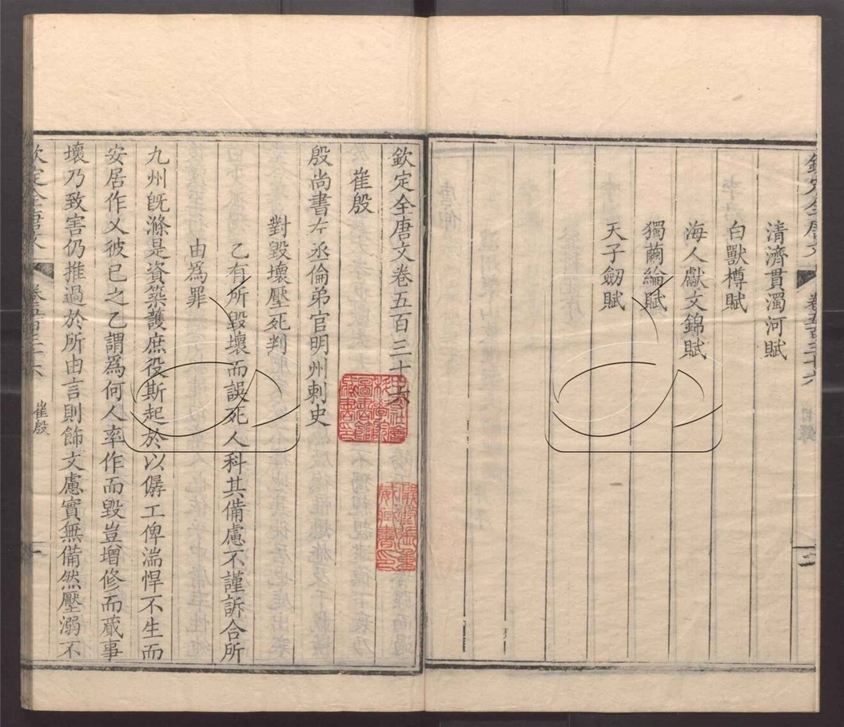 清濟貫濁河賦
白獸樽賦
海人獻文錦賦
獨繭綸賦
天子劒賦
欽定全唐文卷五百三十六
崔殷
殷尚書左丞倫弟官明州刺史
對毀壞壓死判
乙有所毀壞而誤死人科其備慮不謹訴合所
由為罪
九州旣滌是資築護庶役斯起於以僝工俾湍悍不生而
安居作乂彼已之乙謂為何人率作而毀豈增修而蕆事
壞乃致害仍推過於所由言則飾文慮實無備然壓溺不
崔殷